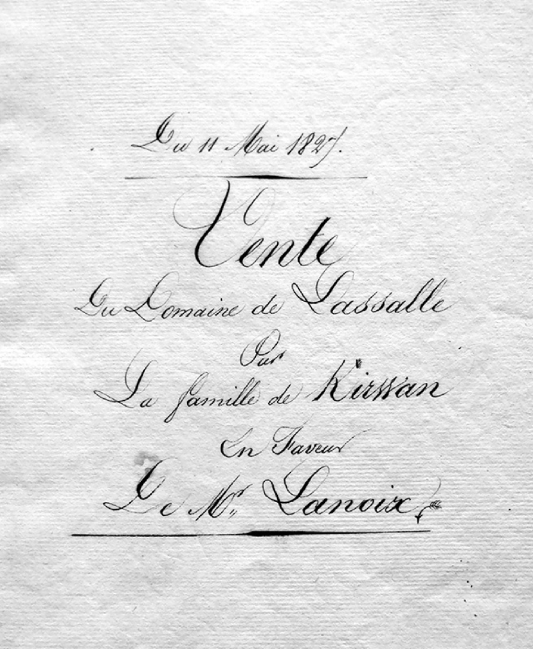 Du 11 Mai 1827.
Vente
Du Domaine de Lassalle
Par
La famille de Kirwan
En Faveur
De Mr Lanoix